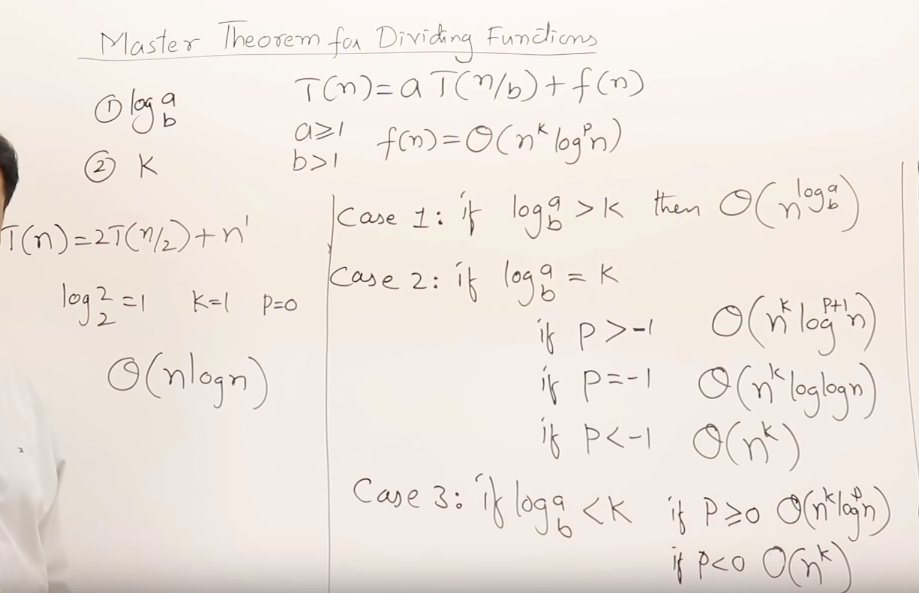 Master Theorem for Dividing Functions
T(n) = a T(n/b) + f(n)
① log_b^a
a ≥ 1
b > 1
f(n) = Θ(n^k log^p n)
② K
T(n) = 2T(n/2) + n^1
log_2^2 = 1 k=1 p=0
Θ(nlogn)
Case 1: if log_b^a > k then Θ(n^{log_b^a})
Case 2: if log_b^a = k
if P > -1 Θ(n^k log^{p+1} n)
if P = -1 Θ(n^k loglogn)
if P < -1 Θ(n^k)
Case 3: if log_b^a < k if P ≥ 0 Θ(n^k log^p n)
if P < 0 Θ(n^k)